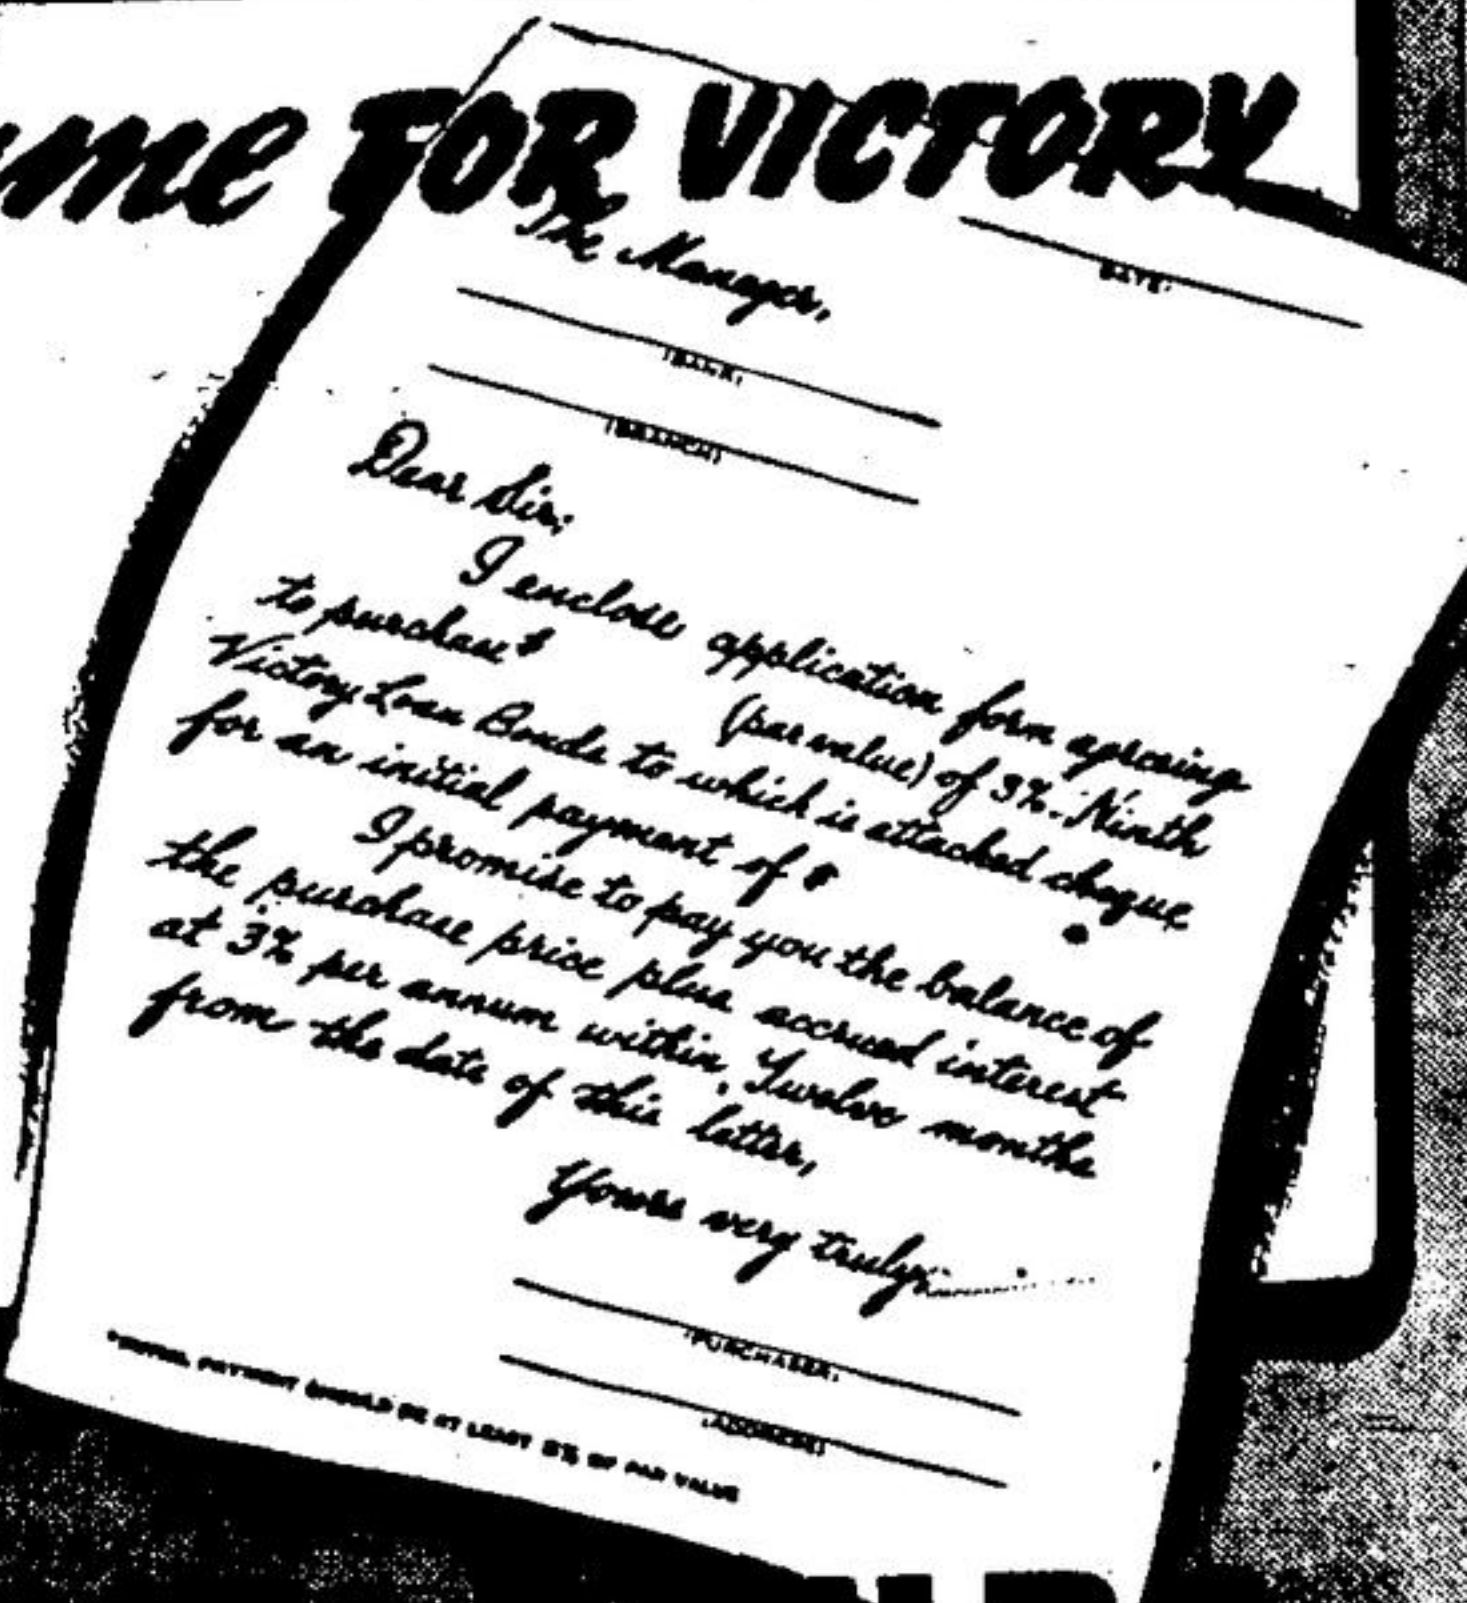 me FOR VICTORY
The Manager,
DATE
(BANK)
(BRANCH)
Dear Sir;
I enclose application form agreeing
to purchase $ (par value) of 3% Ninth
Victory Loan Bonds to which is attached cheque
for an initial payment of $ *
I promise to pay you the balance of
the purchase price plus accrued interest
at 3% per annum within Twelve months
from the date of this letter,
Yours very truly,
(PURCHASER)
(ADDRESS)
*INITIAL PAYMENT SHOULD BE AT LEAST 5% OF PAR VALUE